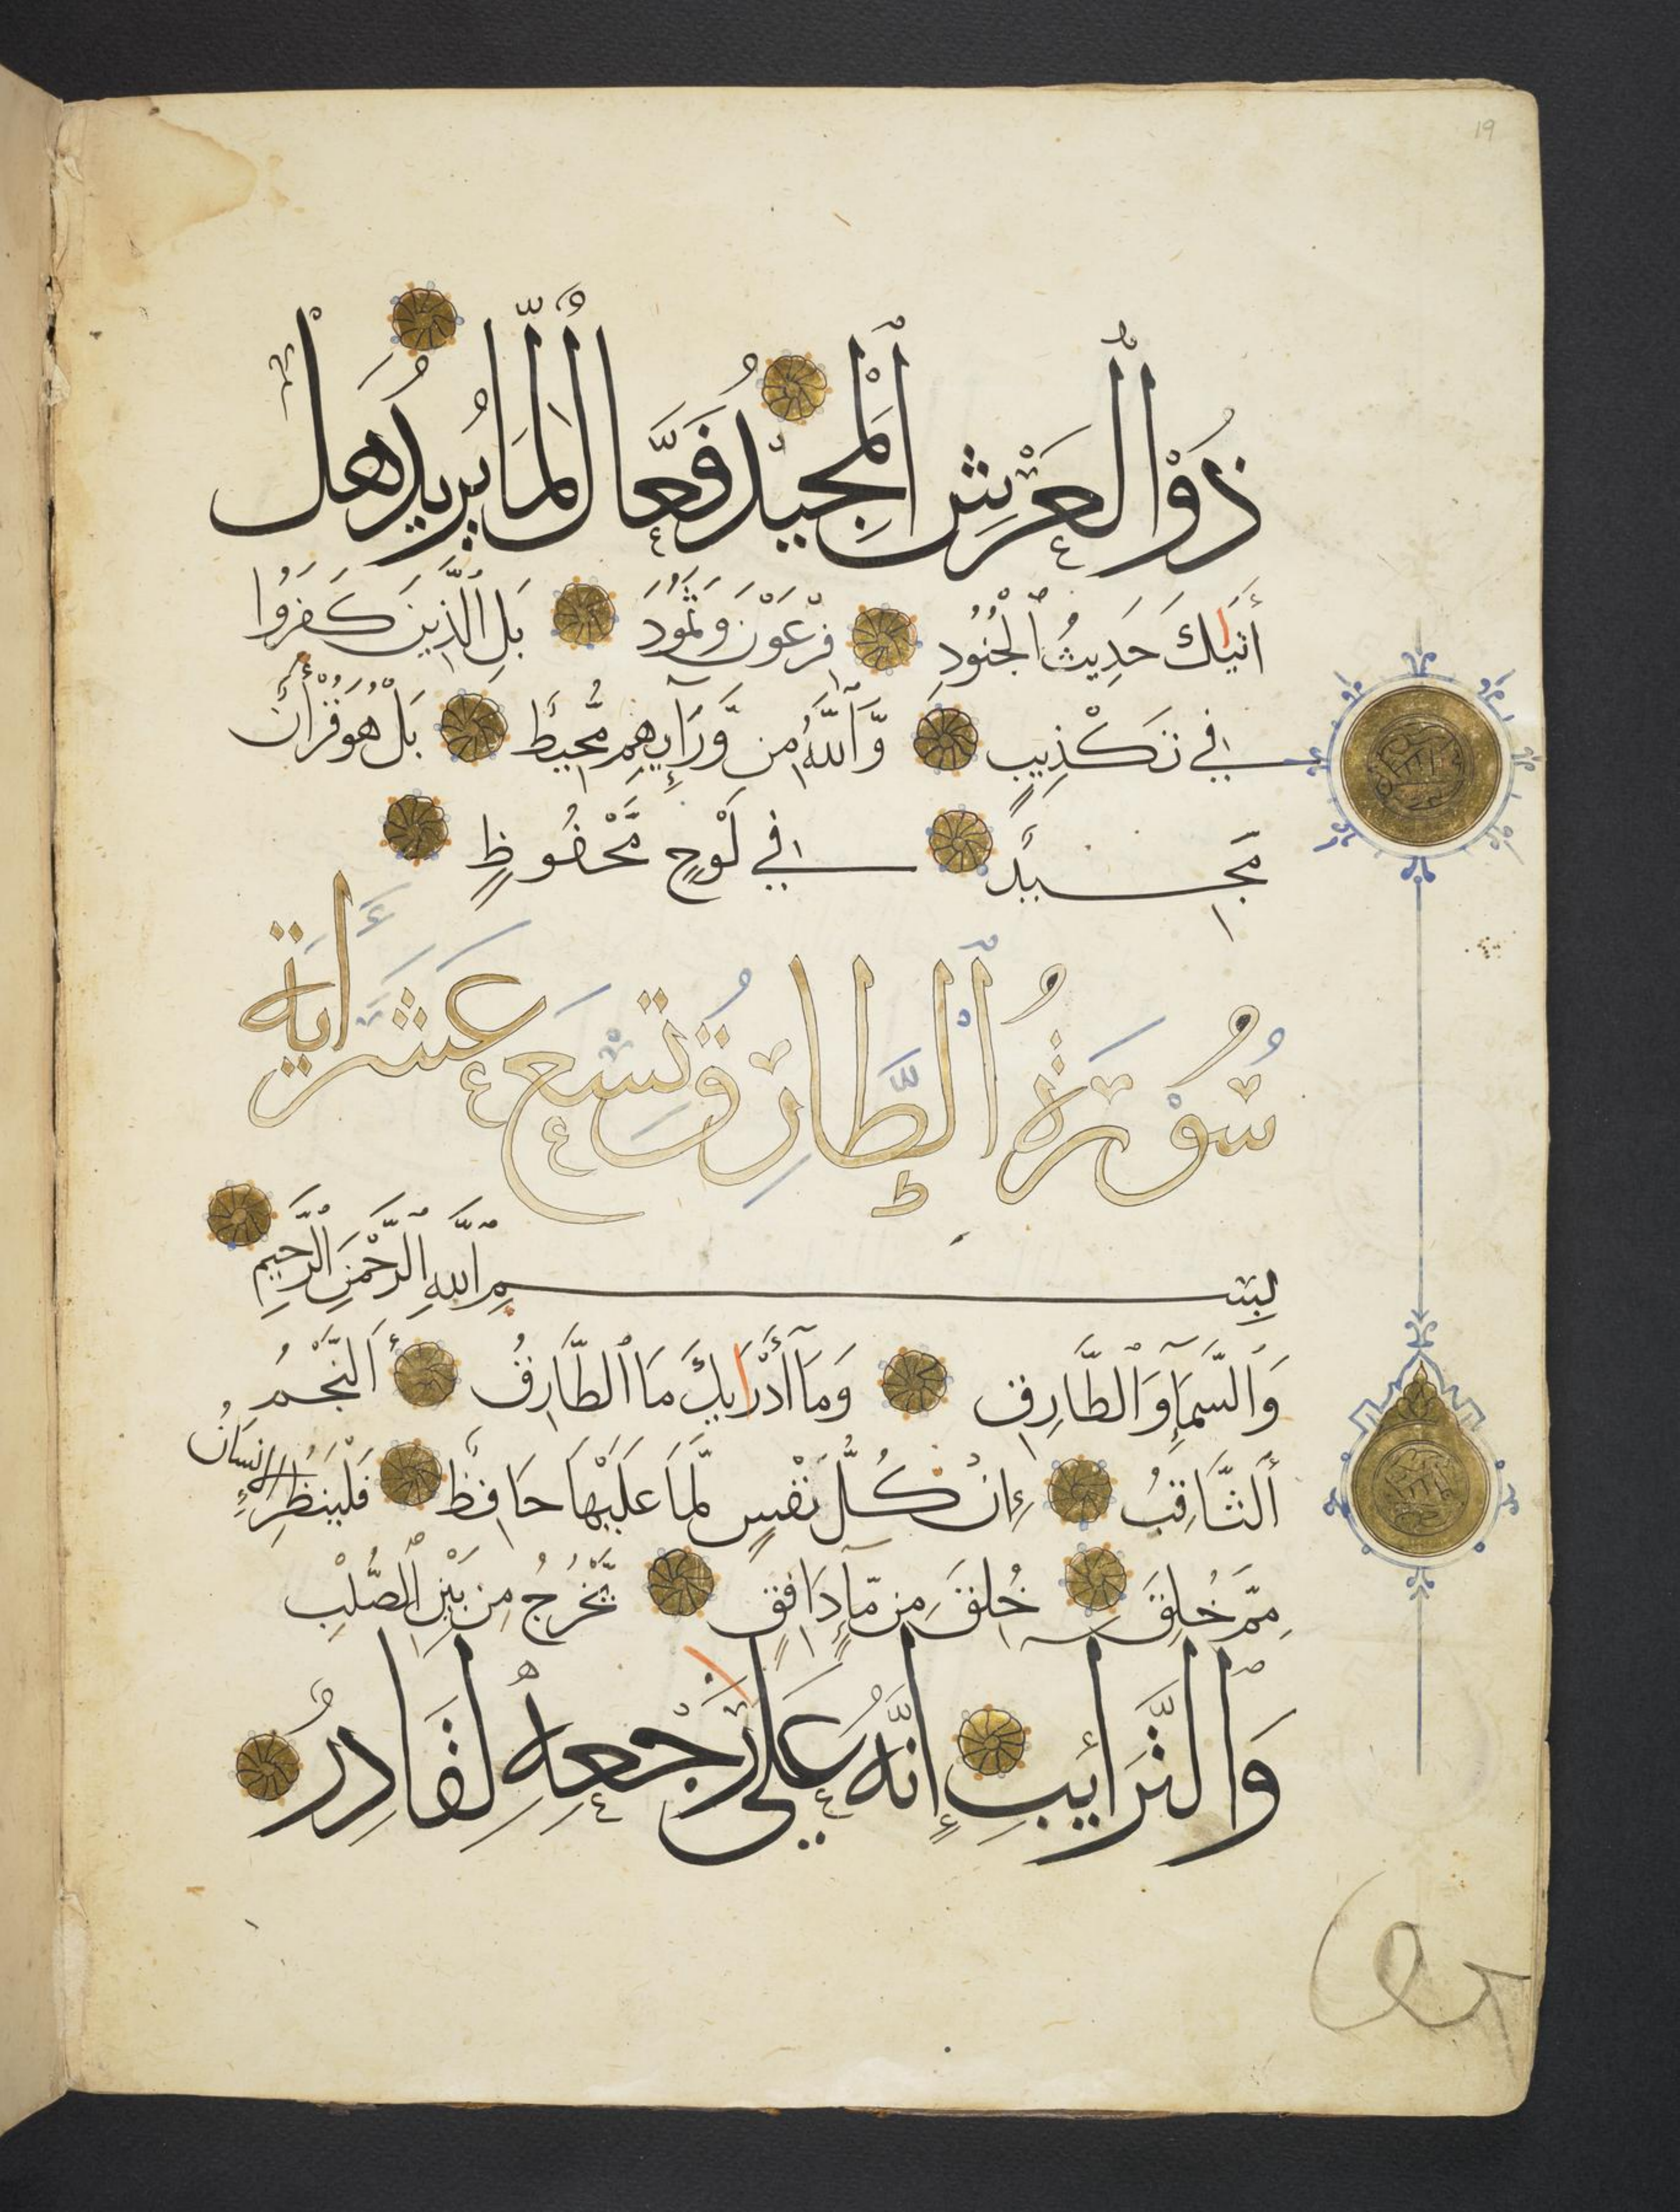 19
ذُو ٱلْعَرْشِ ٱلْمَجِيدُ فَعَّالٌ لِّمَا يُرِيدُ هَلْ
أَتَىٰكَ حَدِيثُ ٱلْجُنُودِ فِرْعَوْنَ وَثَمُودَ بَلِ ٱلَّذِينَ كَفَرُوا
فِي تَكْذِيبٍ وَّٱللَّهُ مِن وَّرَآئِهِم مُّحِيطٌ بَلْ هُوَ قُرْءَانٌ
مَّجِيدٌ فِي لَوْحٍ مَّحْفُوظٍ
سُورَةُ ٱلطَّارِقِ تِسْعَ عَشَرَ أَيَة
بِسْمِ ٱللَّهِ ٱلرَّحْمَنِ ٱلرَّحِيمِ
وَٱلسَّمَآءِ وَٱلطَّارِقِ وَمَآ أَدْرَايكَ مَا ٱلطَّارِقُ أَلنَّجْمُ
أَلثَّاقِبُ إِن كُلُّ نَفْسٍ لَّمَا عَلَيْهَا حَافِظٌ فَلْيَنظُرِ الإِنسَانُ
مِمَّ خُلِقَ خُلِقَ مِن مَّآءٍ دَافِقٍ يَّخْرُجُ مِن بَيْنِ ٱلصُّلْبِ
وَٱلتَّرَائِبِ إِنَّهُ عَلَى رَجْعِهِ لَقَادِرٌ